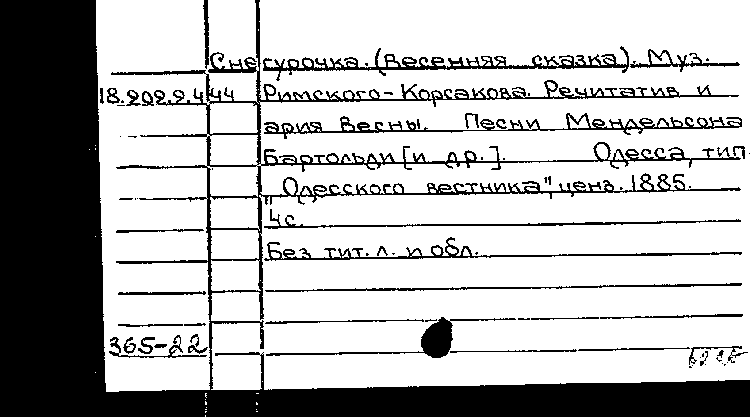 Снегурочка. (Весенняя сказка). Муз.
18.202.2.444 Римского-Корсакова. Речитатив и
ария Весны. Песни Мендельсона
Бартольди [и др.]. Одесса, тип.
"Одесского вестника", ценз. 1885.
4с.
Без тит. л. и обл.
365-22